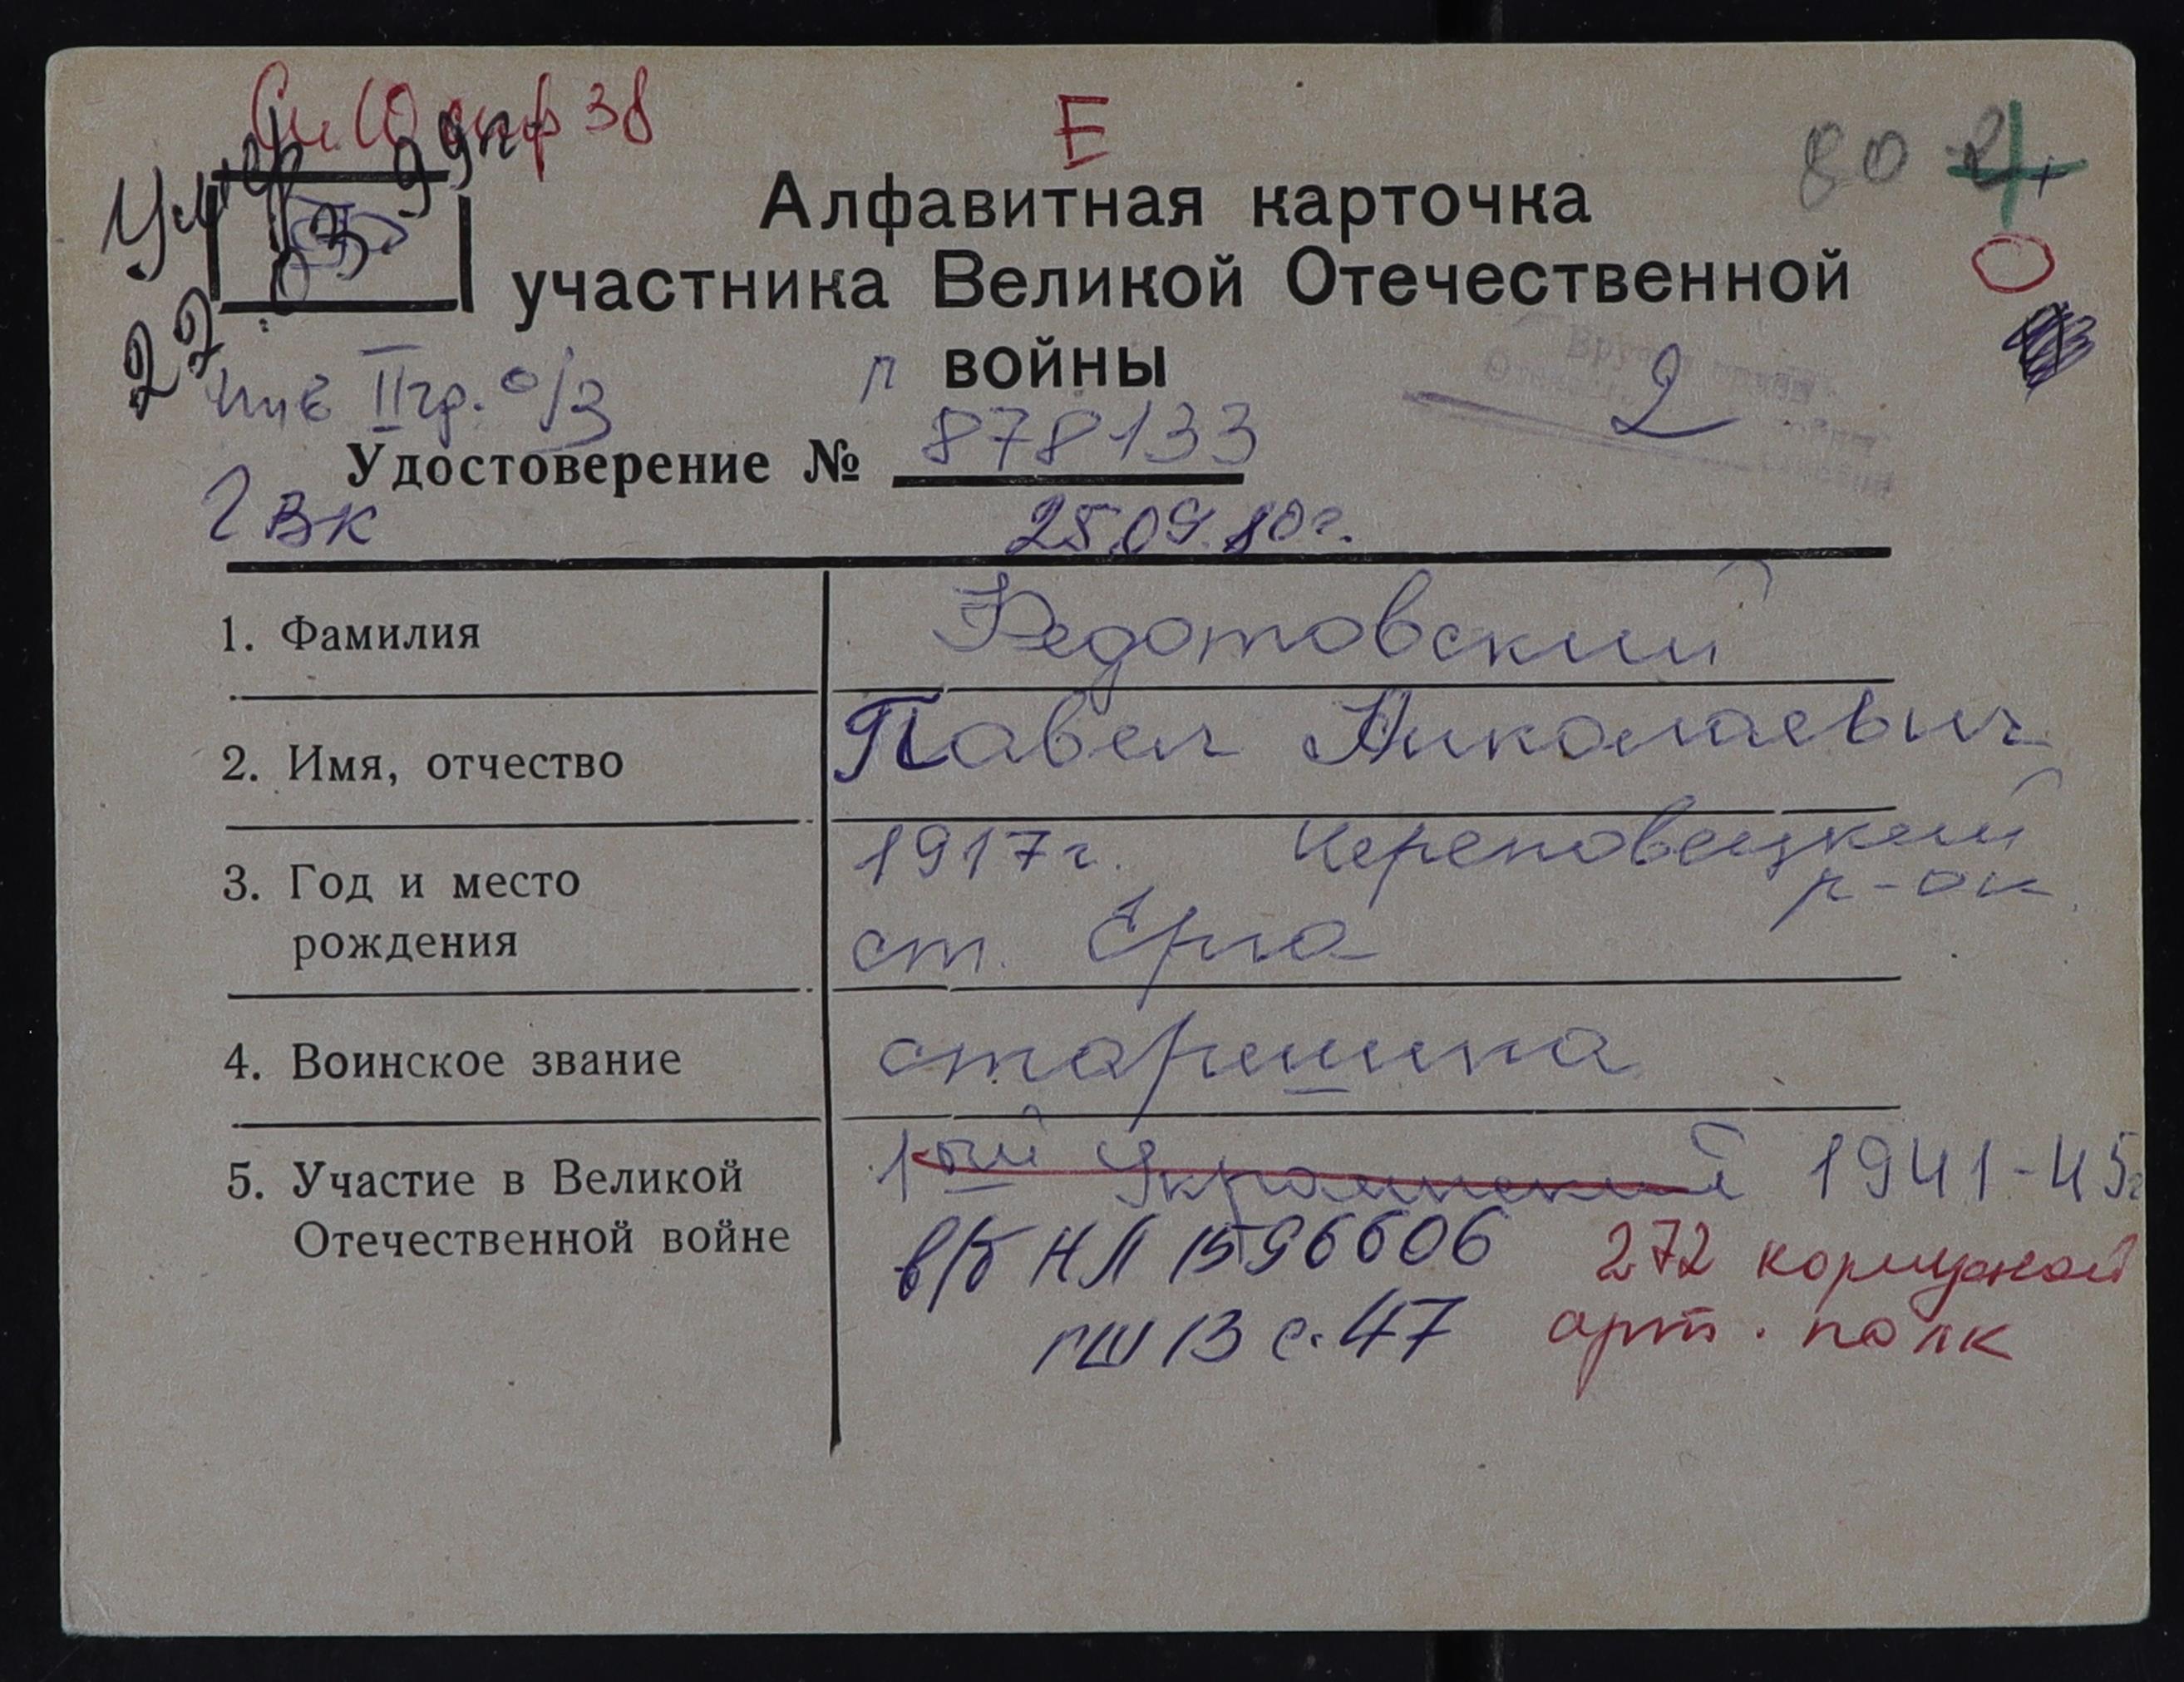 Е
80
Умер
Алфавитная карточка
участника Великой Отечественной
войны
22
инв II гр. о/з
2
Удостоверение № 878133
ГВК
25.09.80г.
1. Фамилия Федотовский
2. Имя, отчество Павел Николаевич
3. Год и место рождения 1917г. Череповецкий р-он
ст. Ерга
4. Воинское звание старшина
5. Участие в Великой Отечественной войне 1ый Украинский 1941-45г
в/б НЛ 1596606 272 корпусной
ГШ 13 с. 47 арт. полк